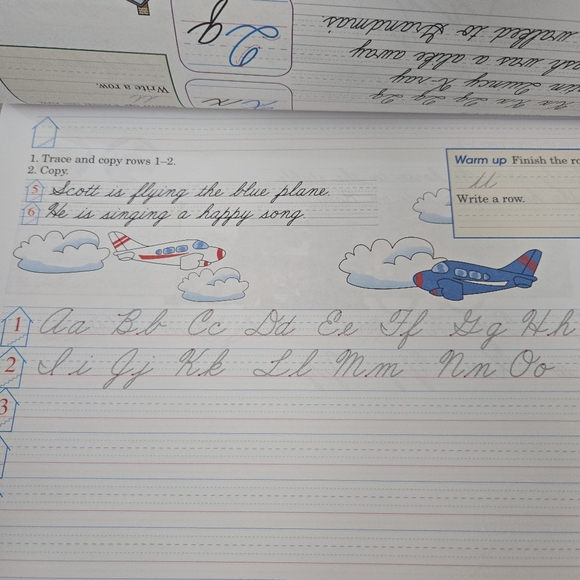 walked to Grandma's
was a away
Quincy X-ray
Write a row.
1. Trace and copy rows 1–2.
2. Copy.
Warm up Finish the
Write a row.
5 Scott is flying the blue plane.
6 He is singing a happy song.
1 Aa Bb Cc Dd Ee Ff Gg Hh
2 Ii Jj Kk Ll Mm Nn Oo
3